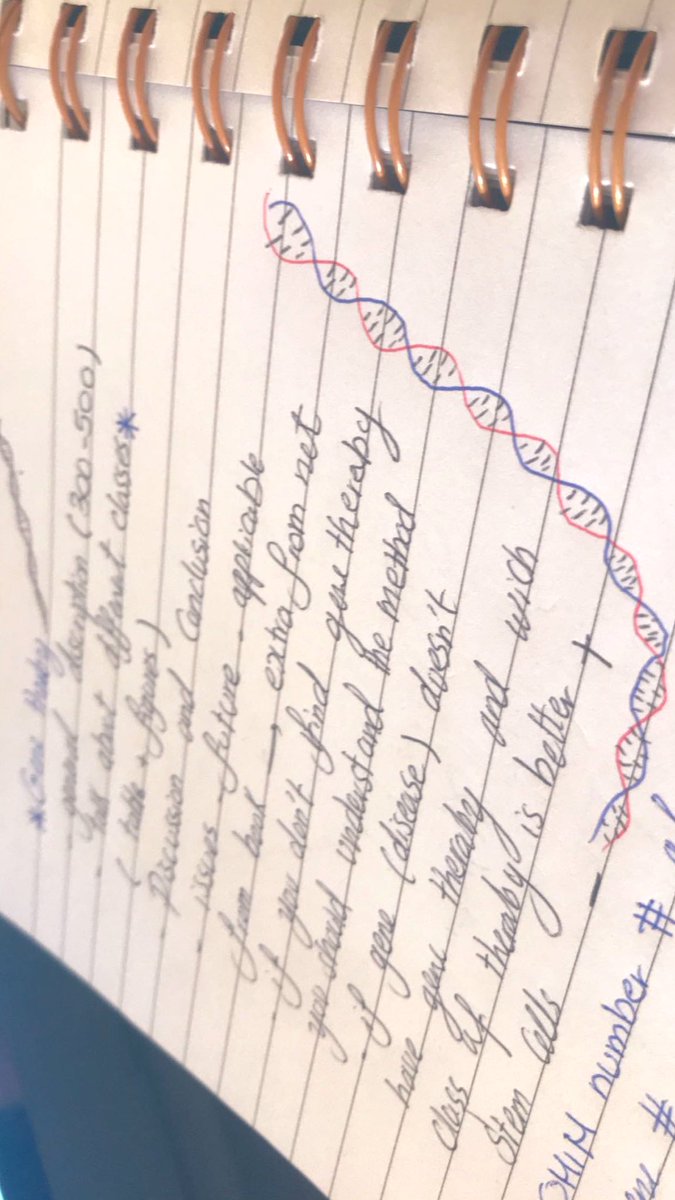 *Gene theraby
- general discribtion (300-500)
- talk about different classes*
(table + figures)
- Discussion and Conclusion
- issues - future - applicable
from book → extra from net
- if you don't find gene theraby
you should understand the method
- if gene (disease) doesn't
have gene theraby and with
class If theraby is better + -
Stem Cells
OMIM number #
#